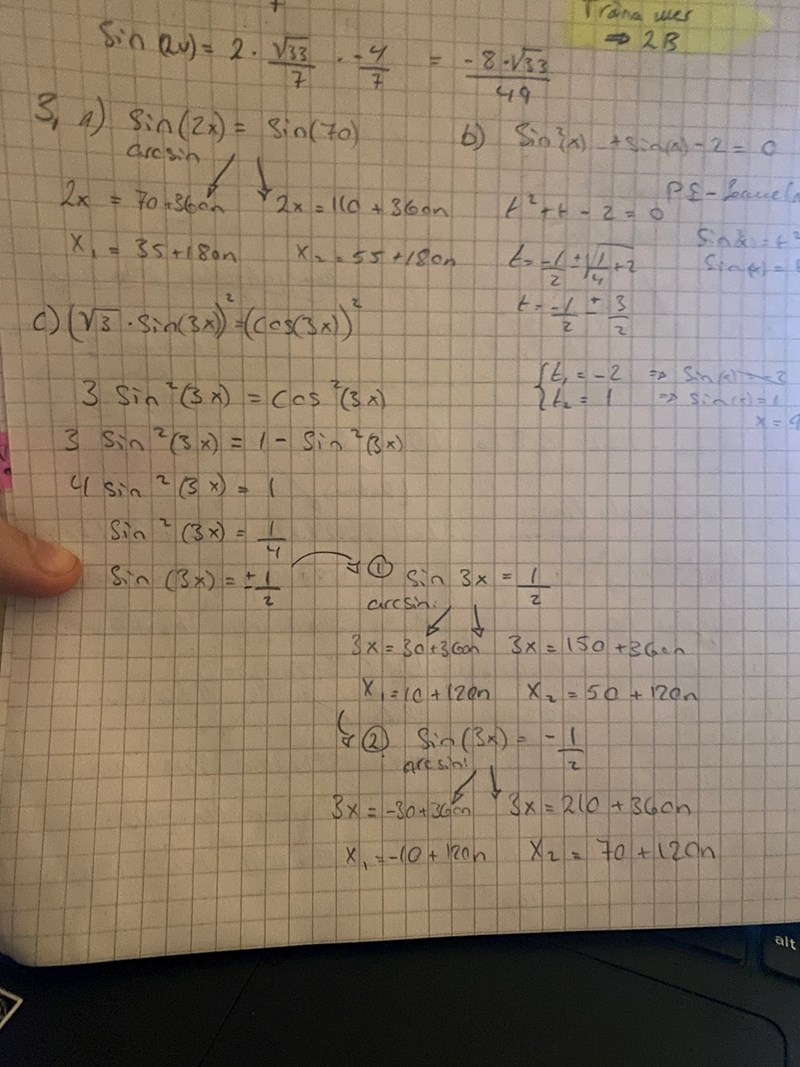 Träna mer
⇒ 2B
Sin(2v) = 2 · √33/7 · -4/7 = -8·√33/49
3, a) Sin(2x) = Sin(70)
arcsin
2x = 70+360n 2x = 110 + 360n
x₁ = 35+180n x₂ = 55+180n
b) Sin²(x) + sin(x) - 2 = 0
t² + t - 2 = 0
t = -1/2 ± √1/4 + 2
t = -1/2 ± 3/2
{t₁ = -2 ⇒ Sin(x) = -2
{t₂ = 1 ⇒ Sin(x) = 1
c) (√3 · Sin(3x))² = (cos(3x))²
3 Sin²(3x) = Cos²(3x)
3 Sin²(3x) = 1 - Sin²(3x)
4 Sin²(3x) = 1
Sin²(3x) = 1/4
Sin(3x) = ±1/2
① Sin 3x = 1/2
arcsin:
3x = 30+360n 3x = 150 + 360n
x₁ = 10 + 120n x₂ = 50 + 120n
② Sin(3x) = -1/2
arcsin:
3x = -30+360n 3x = 210 + 360n
x₁ = -10 + 120n x₂ = 70 + 120n
alt